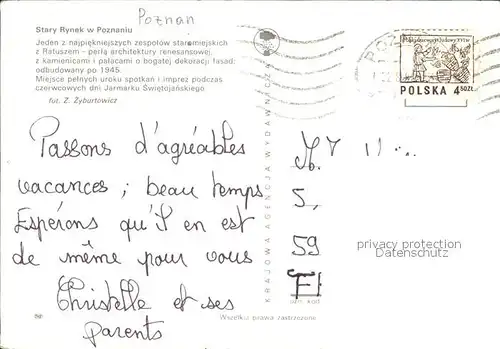 Poznan
Stary Rynek w Poznaniu
Jeden z najpiękniejszych zespołów staromiejskich
z Ratuszem – perłą architektury renesansowej,
z kamienicami i pałacami o bogatej dekoracji fasad;
odbudowany po 1945.
Miejsce pełnych uroku spotkań i imprez podczas
czerwcowych dni Jarmarku Świętojańskiego
fot. Z. Żyburtowicz
POLSKA 4.50ZŁ
KRAJOWA AGENCJA WYDAWNICZA
Passons d'agréables
vacances ; beau temps
Espérons qu'il en est
de même pour vous
Christelle et ses
parents
5,
59
privacy protection
Datenschutz
Wszelkie prawa zastrzeżone